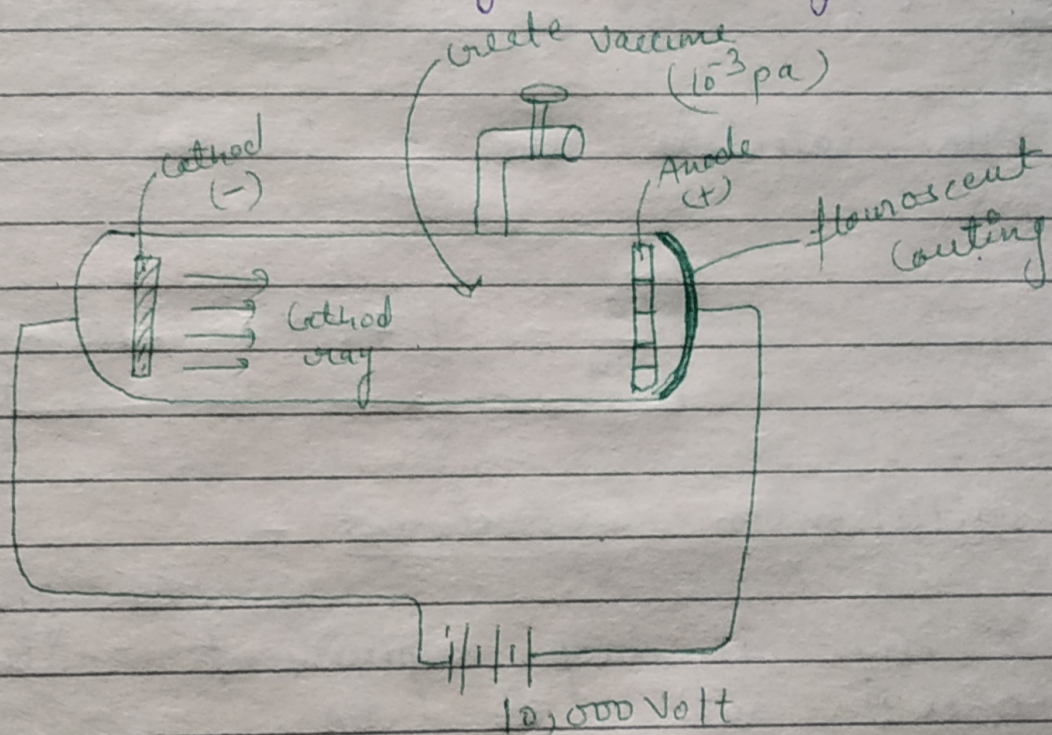 create vaccume
(10⁻³ pa)
Cathod
(-)
Anode
(+)
flouroscent
Couting
Cathod
ray
10,000 Volt